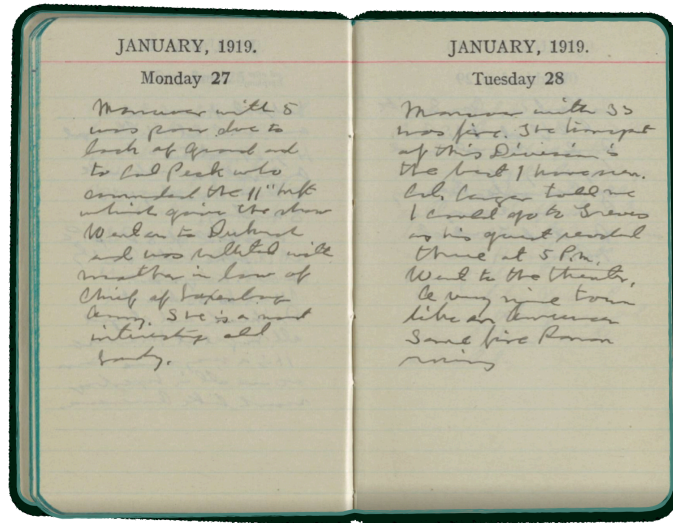 JANUARY, 1919.
Monday 27
Maneuver with 5
was poor due to
lack of ground and
to Col Peck who
commanded the 11" Inf
which gave the show
Went on to
and was billeted with
mother in law of
Chief of Luxenburg
Army. She is a most
interesting old
lady.
JANUARY, 1919.
Tuesday 28
Maneuver with 33
was fine. The transport
of this Division is
the best I have seen.
Col. told me
I could go to Treves
as his guest reached
there at 5 P.m.
Went to the theater.
A very nice town
like an American
Some fine Roman
ruins